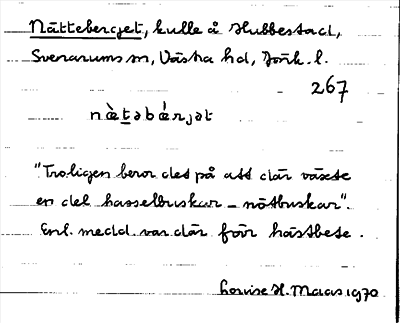 Nätteberget, kulle å Hubbestad,
Svenarums sn, Västra hd, Jönk. l.
267
næ̀təbǽrjət
"Troligen beror det på att där växte
en del hasselbuskar – nötbuskar".
Enl. medd. var där förr hästbete.
Louise H. Maas 1970